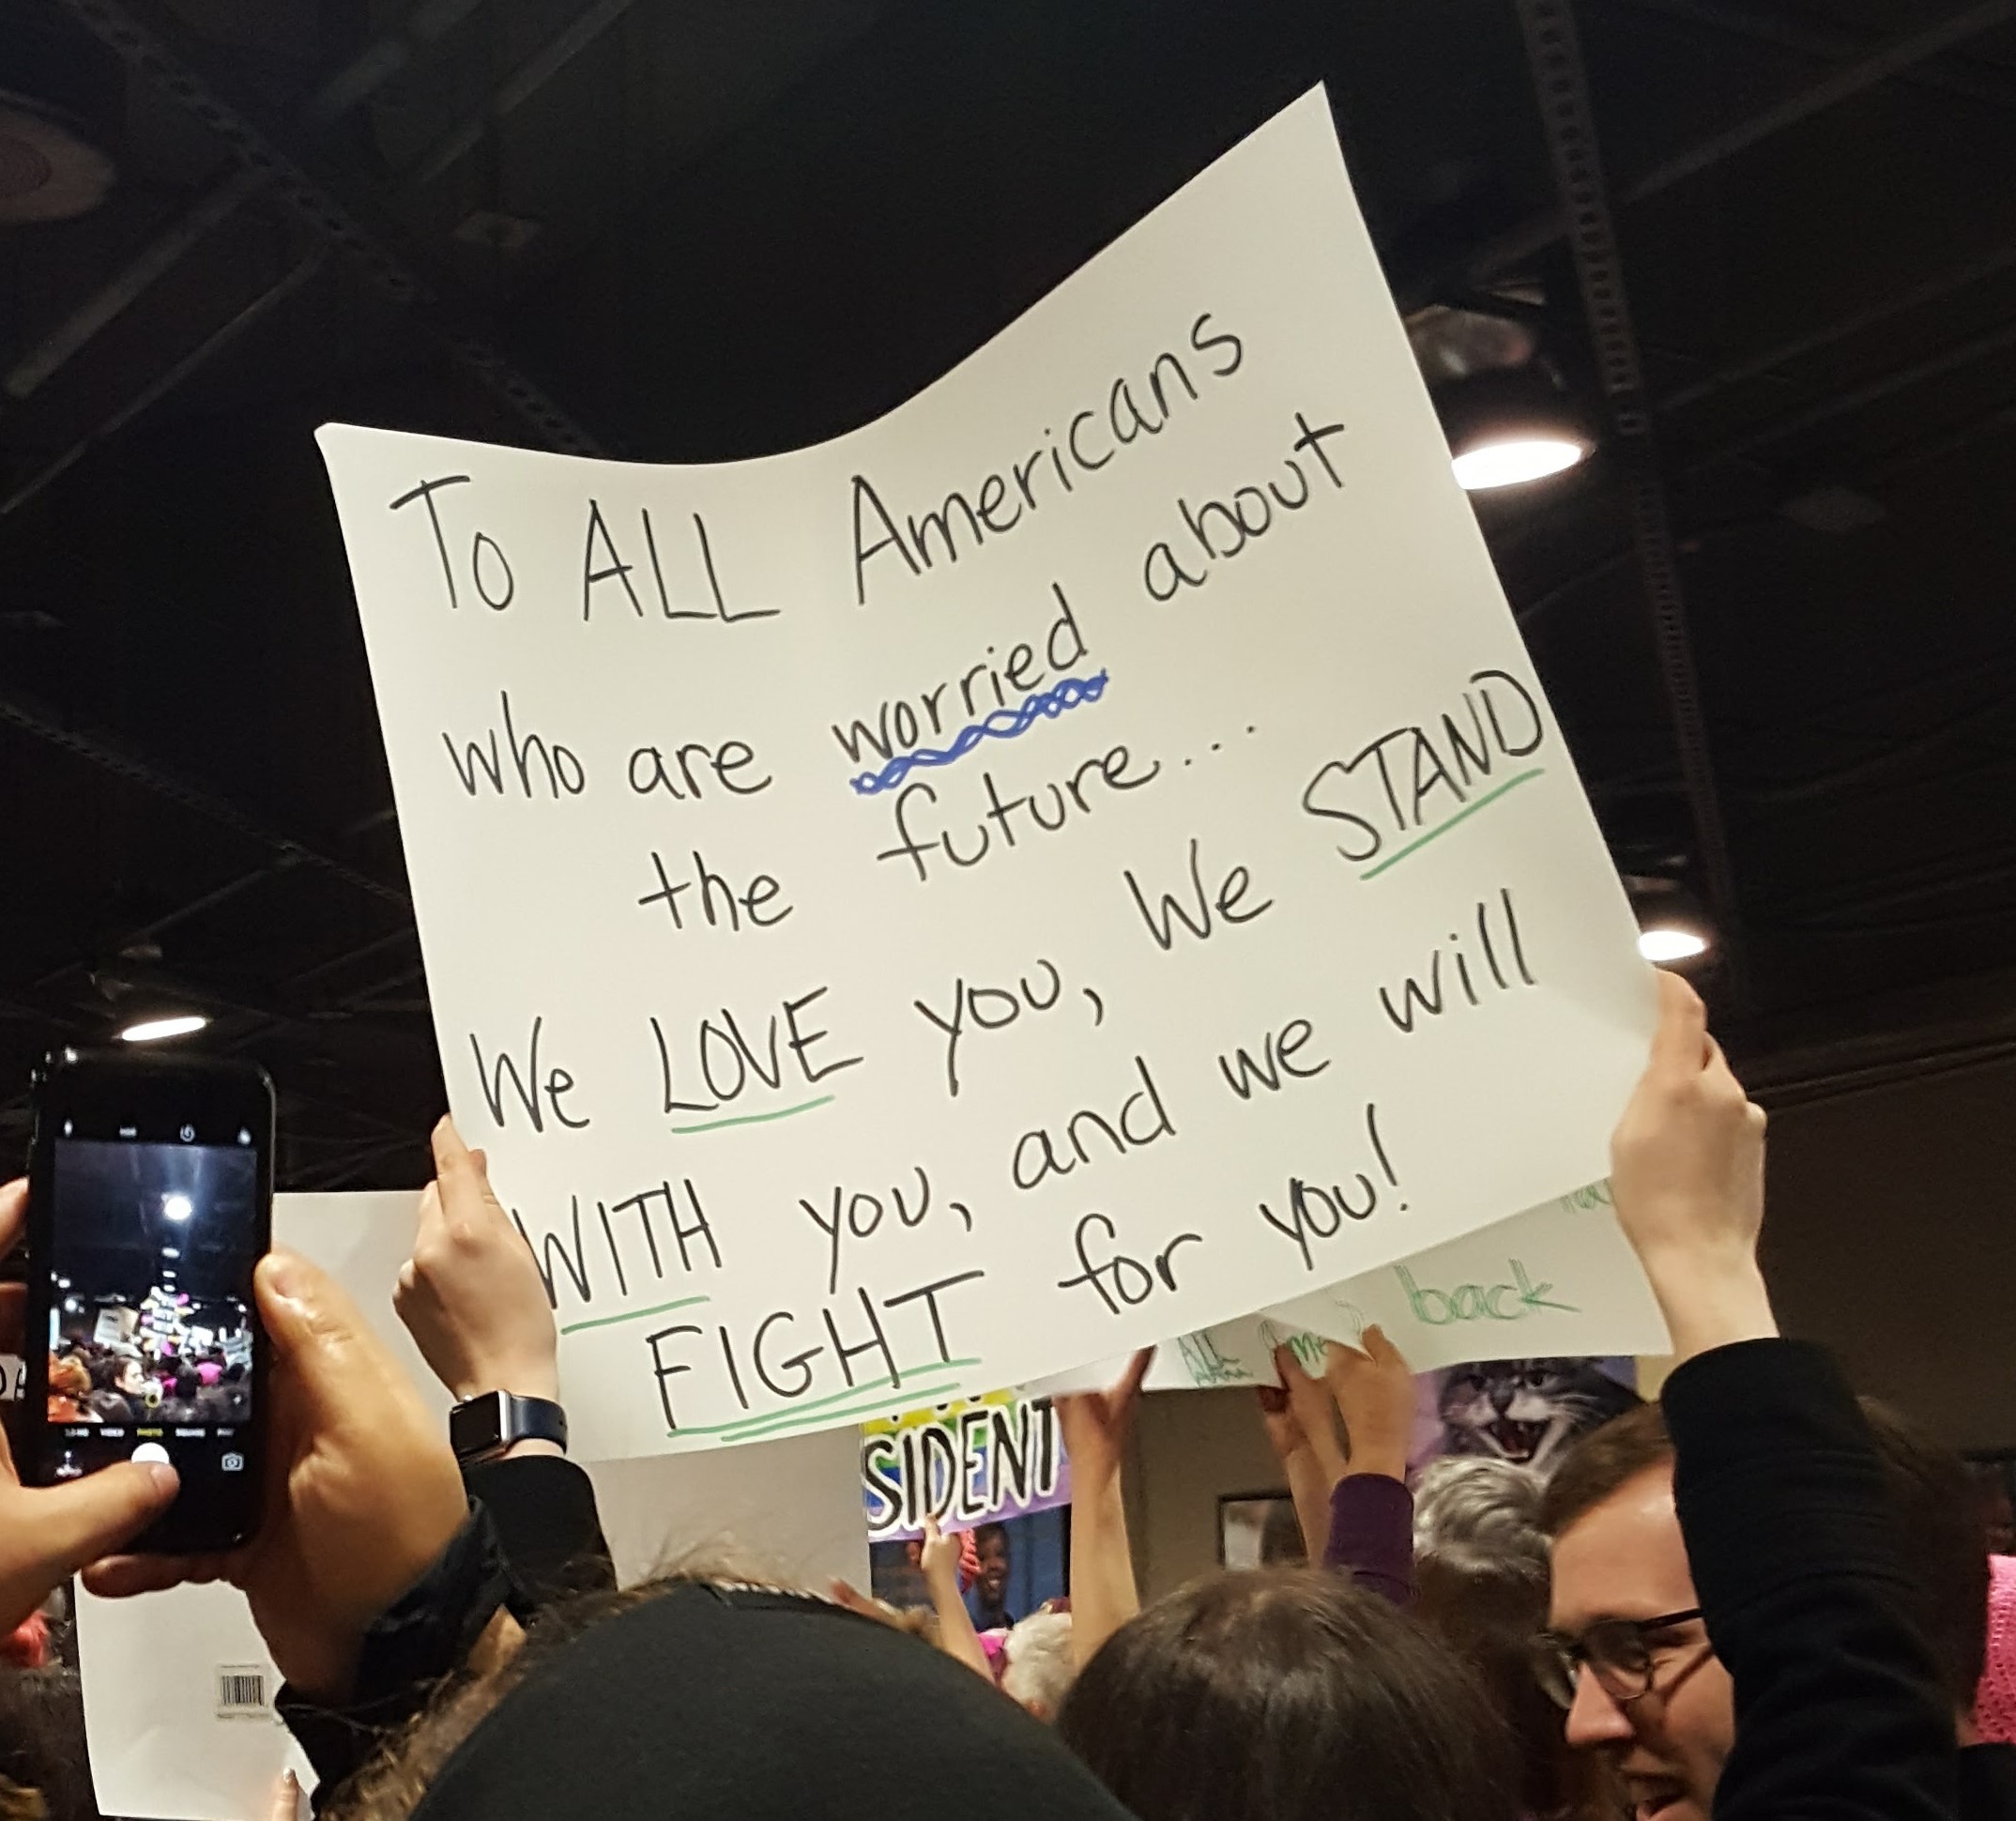 To ALL Americans
who are worried about
the future....
We LOVE you, We STAND
WITH you, and we will
FIGHT for you!
back
ALL
SIDENT
PHOTO